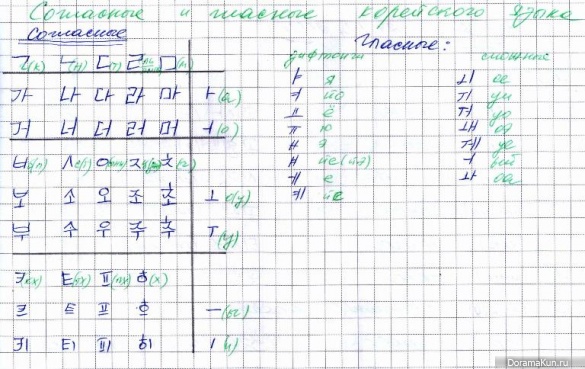 Согласные и гласные корейского языка
Согласные
ㄱ(к) ㄴ(н) ㄷ(т) ㄹ ㅁ(м)
가 나 다 라 마 ㅏ(а)
거 너 더 러 머 ㅓ(о)
ㅂ(п) ㅅ(с) ㅇ ㅈ ㅊ
보 소 오 조 초 ㅗ о(у)
부 수 우 주 추 ㅜ(у)
ㅋ(кх) ㅌ(тх) ㅍ(пх) ㅎ(х)
크 트 프 흐 ㅡ(ы)
키 티 피 히 ㅣ(и)
Гласные:
дифтонги
ㅑ я
ㅕ йо
ㅛ ё
ㅠ ю
ㅐ э
ㅒ йе(йэ)
ㅔ е
ㅖ йе
сложные
ㅚ ое
ㅟ уи
ㅝ уо
ㅙ оэ
ㅞ уе
ㅢ ый
ㅘ оа
DoramaKun.ru